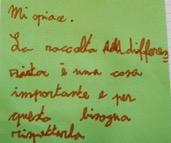 Mi spiace.
La raccolta differen
ziata è una cosa
importante e per
questo bisogna
rispettarla